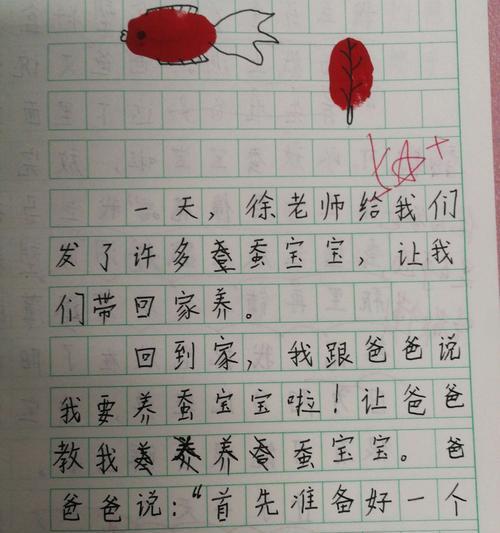 一天，徐老师给我们
发了许多蚕宝宝，让我
们带回家养。
回到家，我跟爸爸说
我要养蚕宝宝啦！让爸爸
教我养蚕宝宝。爸
爸爸说：“首先准备好一个